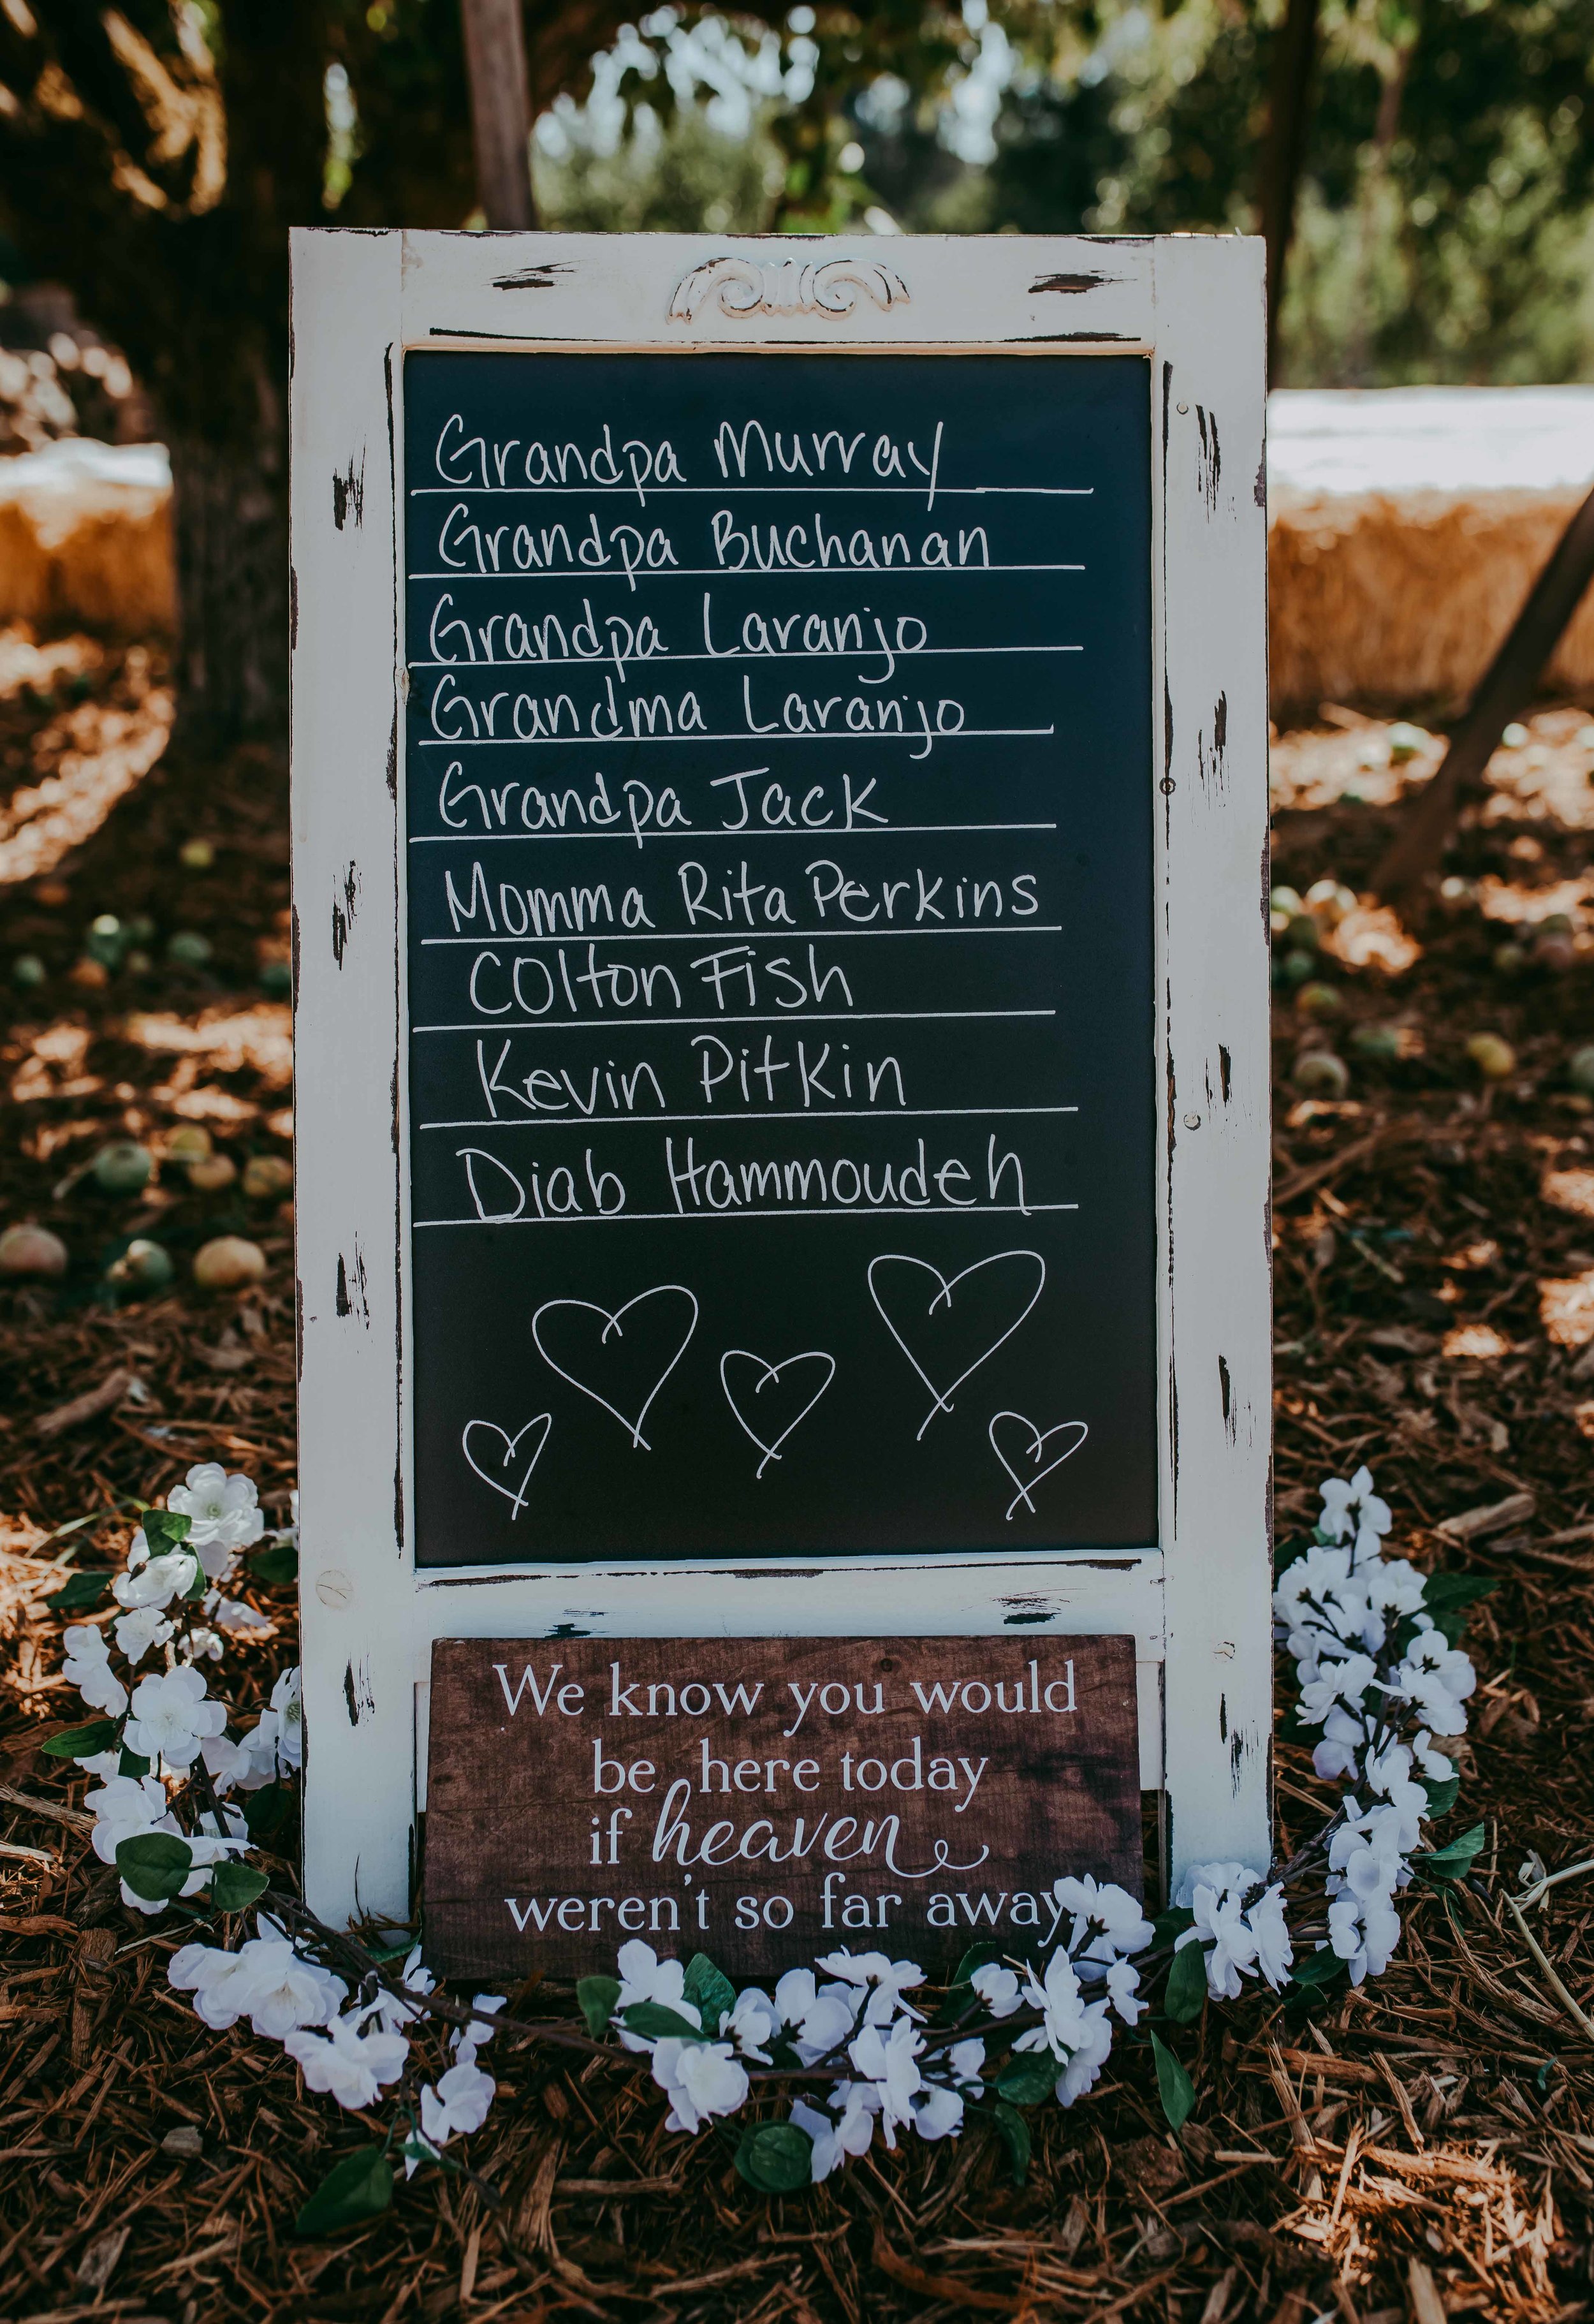 Grandpa Murray
Grandpa Buchanan
Grandpa Laranjo
Grandma Laranjo
Grandpa Jack
Momma Rita Perkins
Colton Fish
Kevin Pitkin
Diab Hammoudeh
We know you would
be here today
if heaven
weren't so far away.